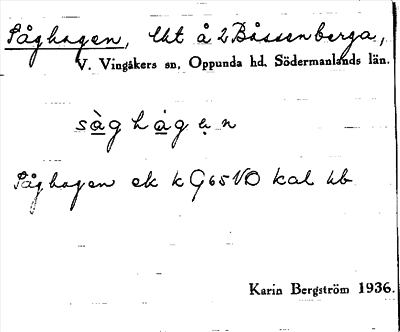 Såghagen, Urt å 2 Båssenberga,
V. Vingåkers sn, Oppunda hd, Södermanlands län.
sàghágen
Såghagen ek k G65VO kal Ub
Karin Bergström 1936.